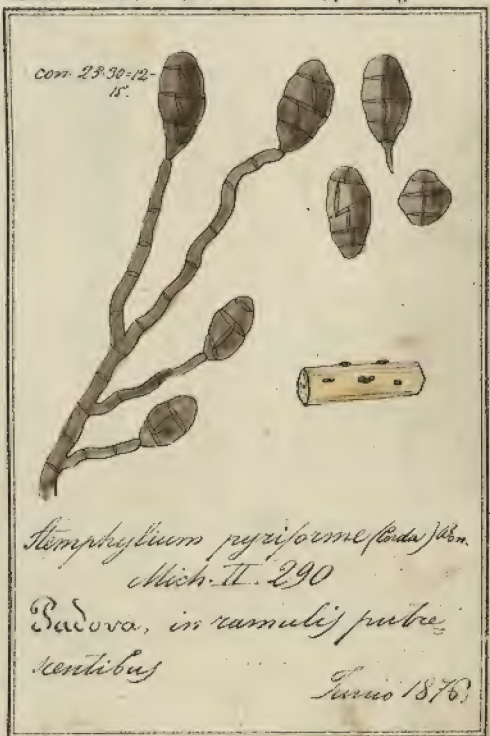 con. 25-30=12-
15.
Stemphylium pyriforme (Corda) Bon.
Mich. II. 290
Padova, in ramulis putre
scentibus
Junio 1876.